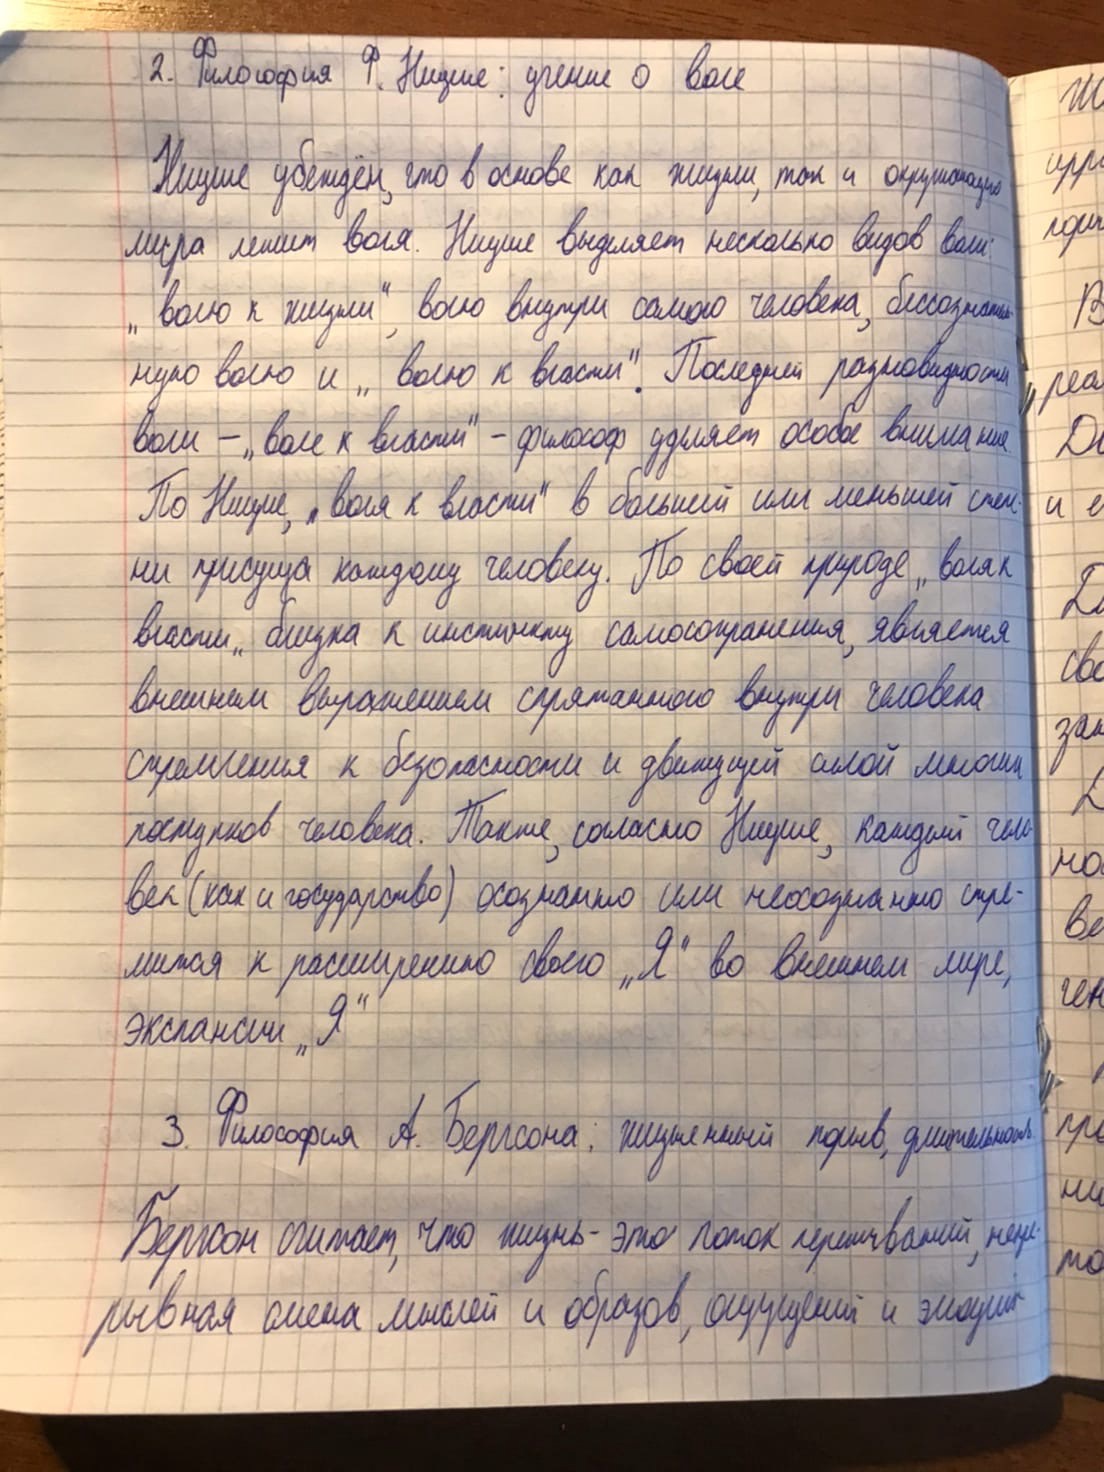 2. Философия Ф. Ницше: учение о воле
Ницше убеждён, что в основе как жизни, так и окружающего
мира лежит воля. Ницше выделяет несколько видов воли:
„волю к жизни", волю внутри самого человека, бессознатель-
ную волю и „волю к власти". Последней разновидности
воли – „воле к власти" – философ уделяет особое внимание.
По Ницше, „воля к власти" в большей или меньшей степе-
ни присуща каждому человеку. По своей природе „воля к
власти„ близка к инстинкту самосохранения, является
внешним выражением спрятанного внутри человека
стремления к безопасности и движущей силой многих
поступков человека. Также, согласно Ницше, каждый чело-
век (как и государство) осознанно или неосознанно стре-
мится к расширению своего „Я" во внешнем мире,
экспансии „Я"
3. Философия А. Бергсона: жизненный порыв, длительность.
Бергсон считает, что жизнь – это поток переживаний, непре-
рывная смена мыслей и образов, ощущений и эмоций
В
реал
и
сво
зак
но
ве
ген
про
ни
то